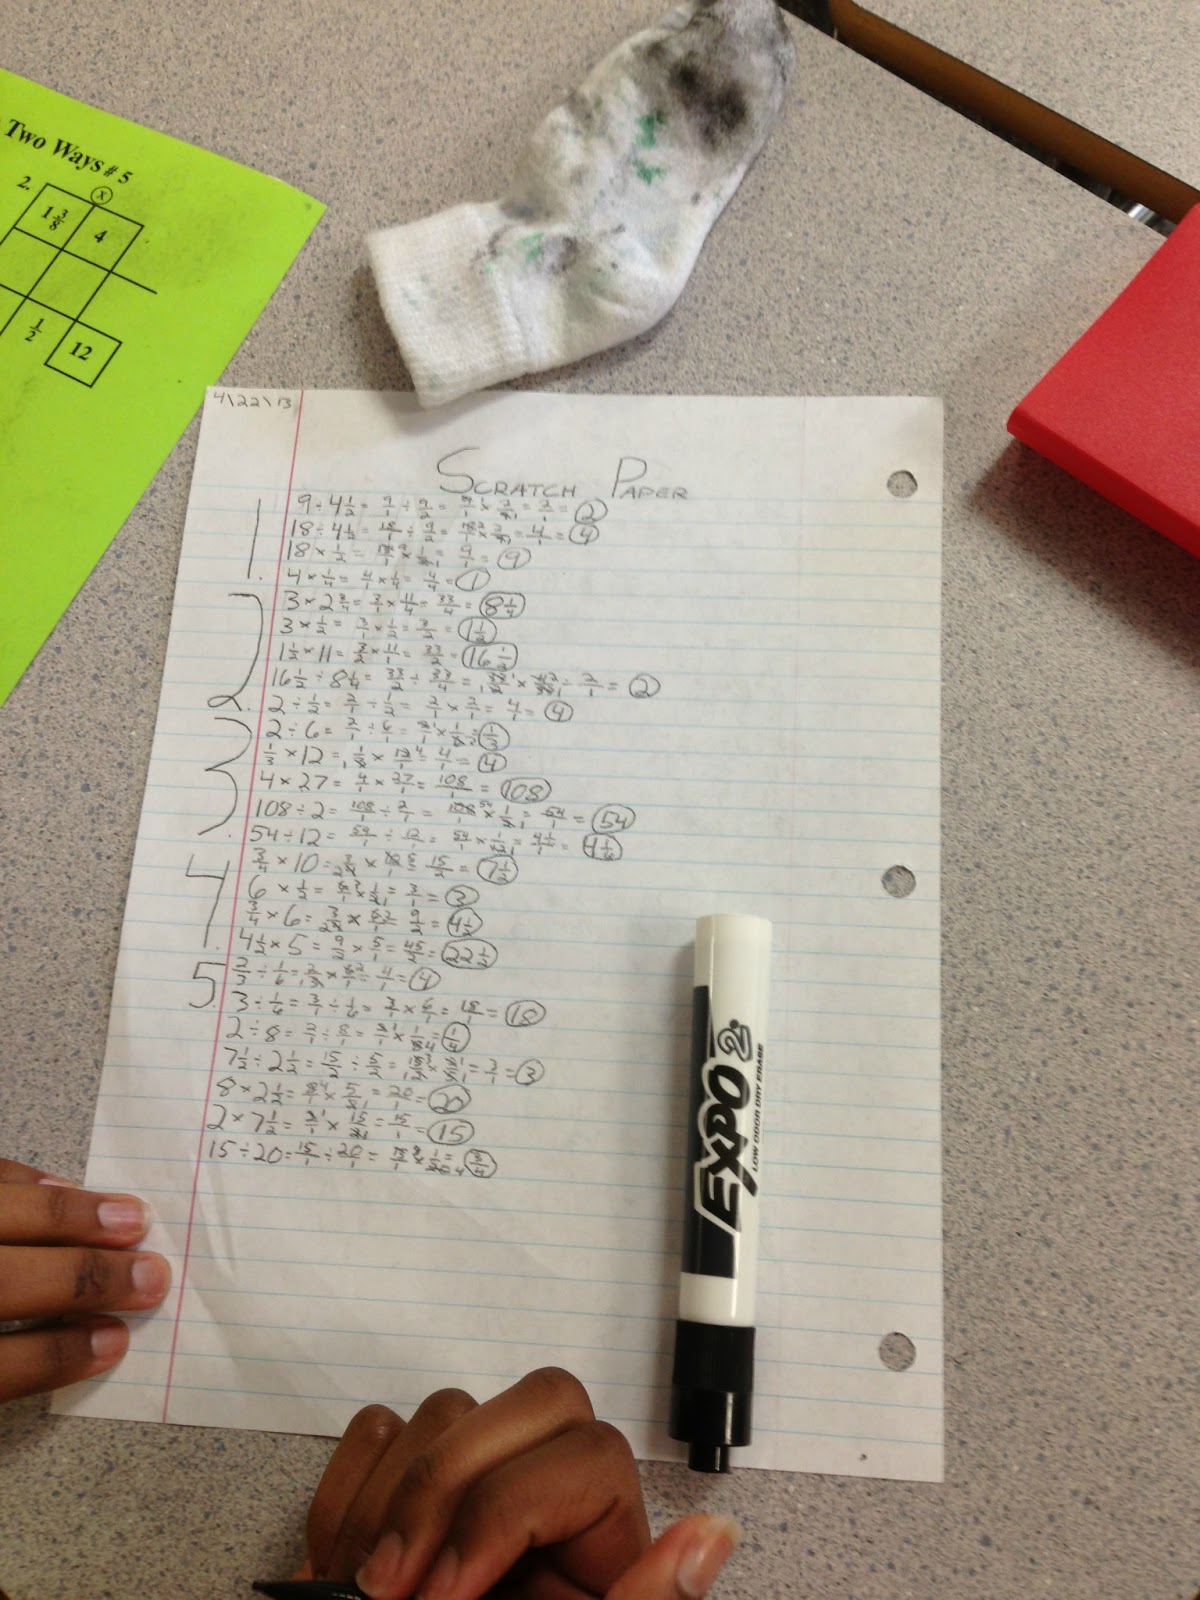 Two Ways # 5
2.
x
1 3/8 4
1/2 12
4\22\13
SCRATCH PAPER
1.
9 ÷ 4 1/2 = 9/1 ÷ 9/2 = 9/1 × 2/9 = 2/1 = 2
18 ÷ 4 1/2 = 18/1 ÷ 9/2 = 18/1 × 2/9 = 4/1 = 4
18 × 1/2 = 18/1 × 1/2 = 9/1 = 9
4 × 1/4 = 4/1 × 1/4 = 4/4 = 1
2.
3 × 2 3/4 = 3/1 × 11/4 = 33/4 = 8 1/4
3 × 1/2 = 3/1 × 1/2 = 3/2 = 1 1/2
1 1/2 × 11 = 3/2 × 11/1 = 33/2 = 16 1/2
16 1/2 ÷ 8 1/4 = 33/2 ÷ 33/4 = 33/2 × 4/33 = 2/1 = 2
2 ÷ 1/2 = 2/1 ÷ 1/2 = 2/1 × 2/1 = 4/1 = 4
3.
2 ÷ 6 = 2/1 ÷ 6/1 = 2/1 × 1/6 = 1/3
1/3 × 12 = 1/3 × 12/1 = 4/1 = 4
4 × 27 = 4/1 × 27/1 = 108/1 = 108
108 ÷ 2 = 108/1 ÷ 2/1 = 108/1 × 1/2 = 54/1 = 54
54 ÷ 12 = 54/1 ÷ 12/1 = 54/1 ×
4.
3/4 × 10 = 3/4 × 10/1 = 15/2 = 7 1/2
6 × 1/2 = 6/1 × 1/2 = 3/1 = 3
3/4 × 6 = 3/4 × 6/1 = 9/2 = 4 1/2
4 1/2 × 5 = 9/2 × 5/1 = 45/2 = 22 1/2
5.
2/3 ÷ 1/6 = 2/3 × 6/1 = 4/1 = 4
3 ÷ 1/6 = 3/1 ÷ 1/6 = 3/1 × 6/1 = 18/1 = 18
2 ÷ 8 = 2/1 ÷ 8/1 = 2/1 × 1/8 = 1/4
7 1/2 ÷ 2 1/2 = 15/2 ÷ 5/2 = 15/2 × 2/5 = = 3
8 × 2 1/2 = 8/1 × 5/2 = 20/1 = 20
2 × 7 1/2 = 2/1 × 15/2 = 15/1 = 15
15 ÷ 20 = 15/1 ÷ 20/1 = 15/1 × 1/20 = 3/4
EXPO
2
LOW ODOR DRY ERASE